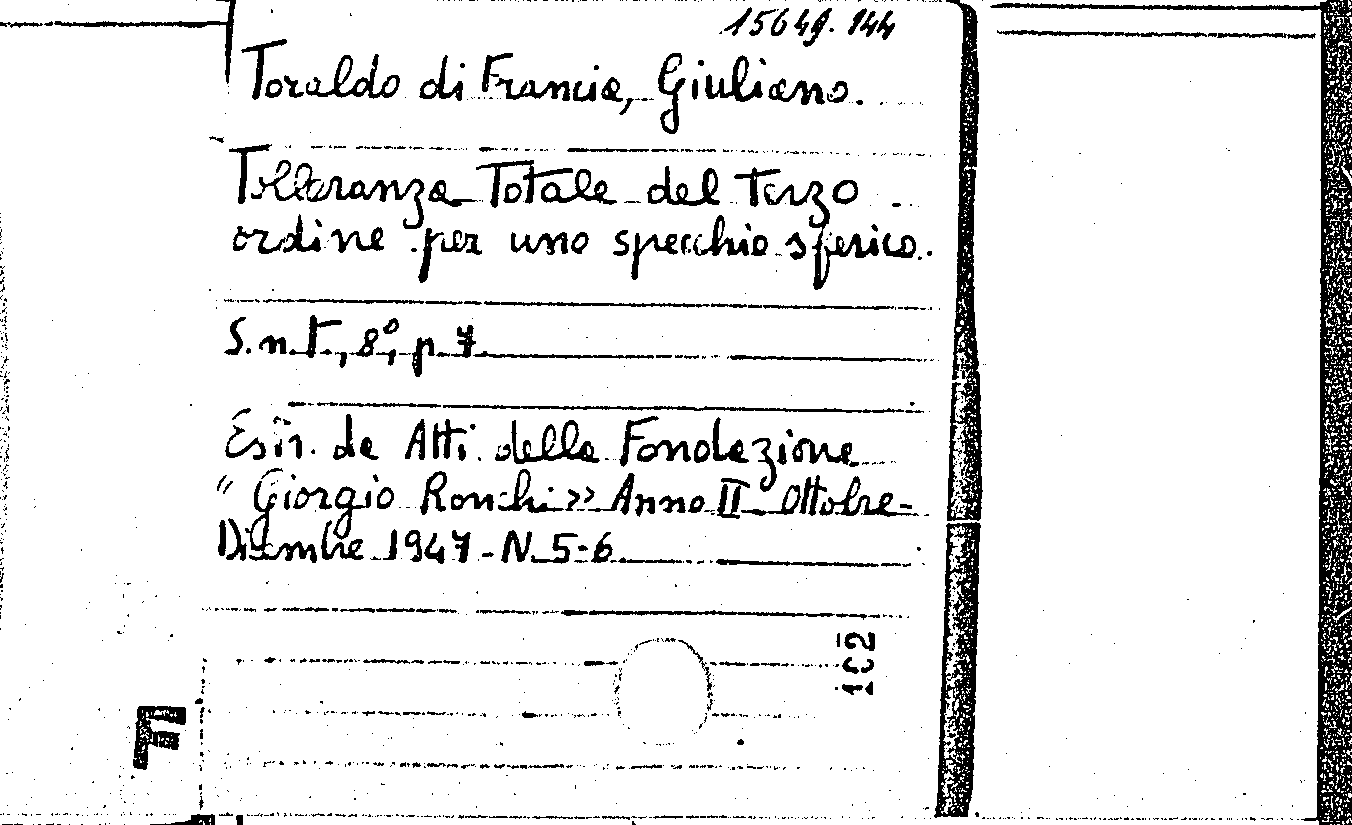 15649.144
Toraldo di Francia, Giuliano.
Tolleranza Totale del terzo
ordine per uno specchio sferico.
S.n.t., 8°, p. 7
Estr. da Atti della Fondazione
“Giorgio Ronchi” Anno II Ottobre-
Dicembre 1947 - N. 5-6
102
F